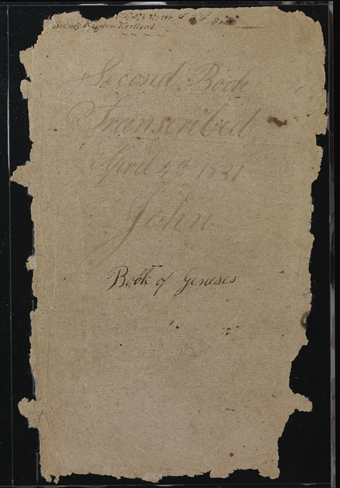 Sidney Rigdon Kirtland
Second Book
Transcribed
April 4th 1831
John
Book of Geneses